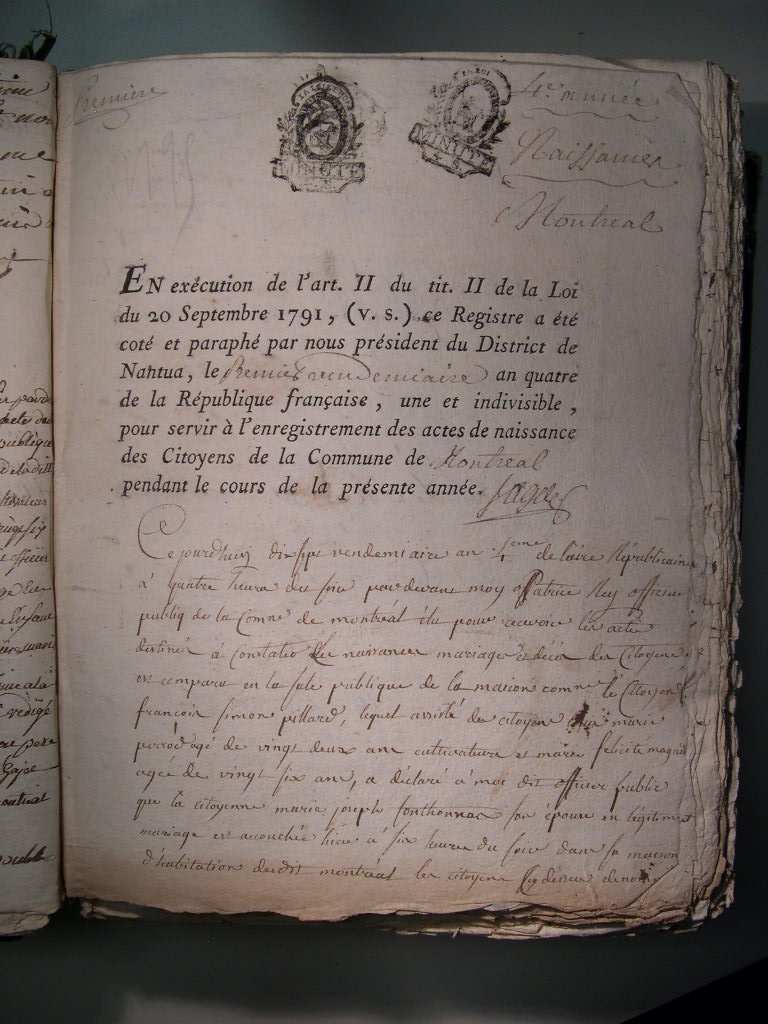 Premiere
4e année
Naissances
Montreal
MINUTE
MINUTE
EN exécution de l'art. II du tit. II de la Loi
du 20 Septembre 1791, (v. s.) ce Registre a été
coté et paraphé par nous président du District de
Nantua, le Premier vendemiaire an quatre
de la République française, une et indivisible,
pour servir à l'enregistrement des actes de naissance
des Citoyens de la Commune de Montreal
pendant le cours de la présente année.
Cejourdhuy dix sept vendemiaire an 4eme de l'aire Républicaine
à quatre heure du soir pardevant moy patrice Rey officier
publiq de la Comne de montréal élu pour recevoir les actes
destinés à Constater les naissances mariages et décès des Citoyens
est comparu en la sale publique de la maison comne le Citoyen
françois simon pillard, lequel assisté du citoyen marie
perrod agé de vingt deux ans cultivateur et marie felicité
agée de vingt six ans, a déclaré à moi dit officier public
que la citoyenne marie joseph fonthonnas son épouse en légitime
mariage est acouchée hier à six heures du soir dans sa maison
d'habitation dudit montréal les citoyens cy dessus denom